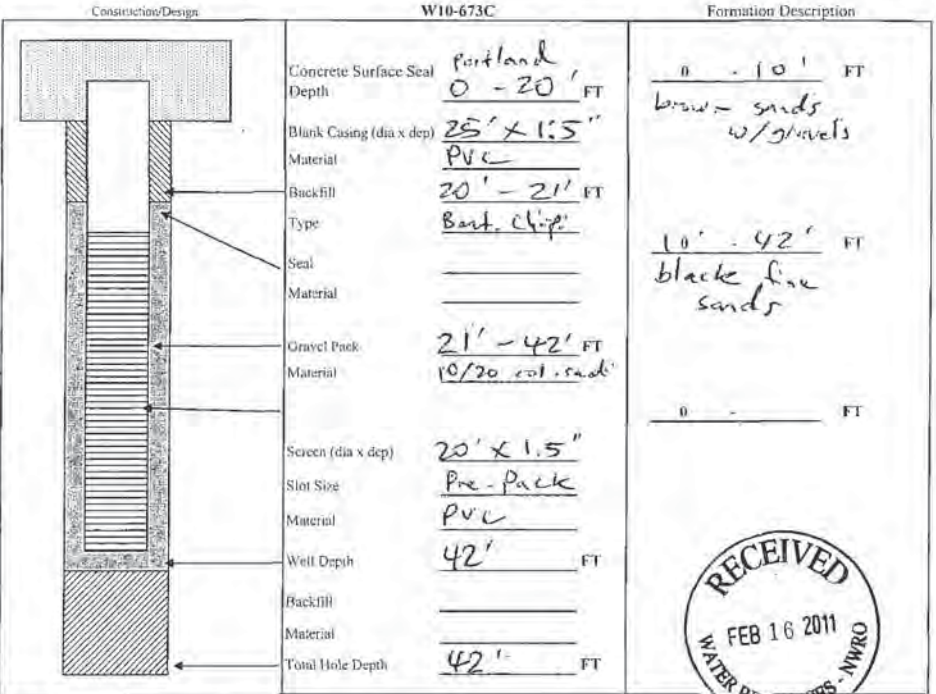 Construction/Design
W10-673C
Formation Description
Concrete Surface Seal Portland
Depth 0 - 20' FT
Blank Casing (dia x dep) 25' x 1.5"
Material PVC
Backfill 20' - 21' FT
Type Bent. Chips
Seal
Material
Gravel Pack 21' - 42' FT
Material 10/20 col. sand
Screen (dia x dep) 20' x 1.5"
Slot Size Pre-Pack
Material PVC
Well Depth 42' FT
Backfill
Material
Total Hole Depth 42' FT
0 - 10' FT
brown sands
w/gravels
10' - 42' FT
blacke fine
sands
0 - FT
RECEIVED
FEB 16 2011
WATER
NWRO